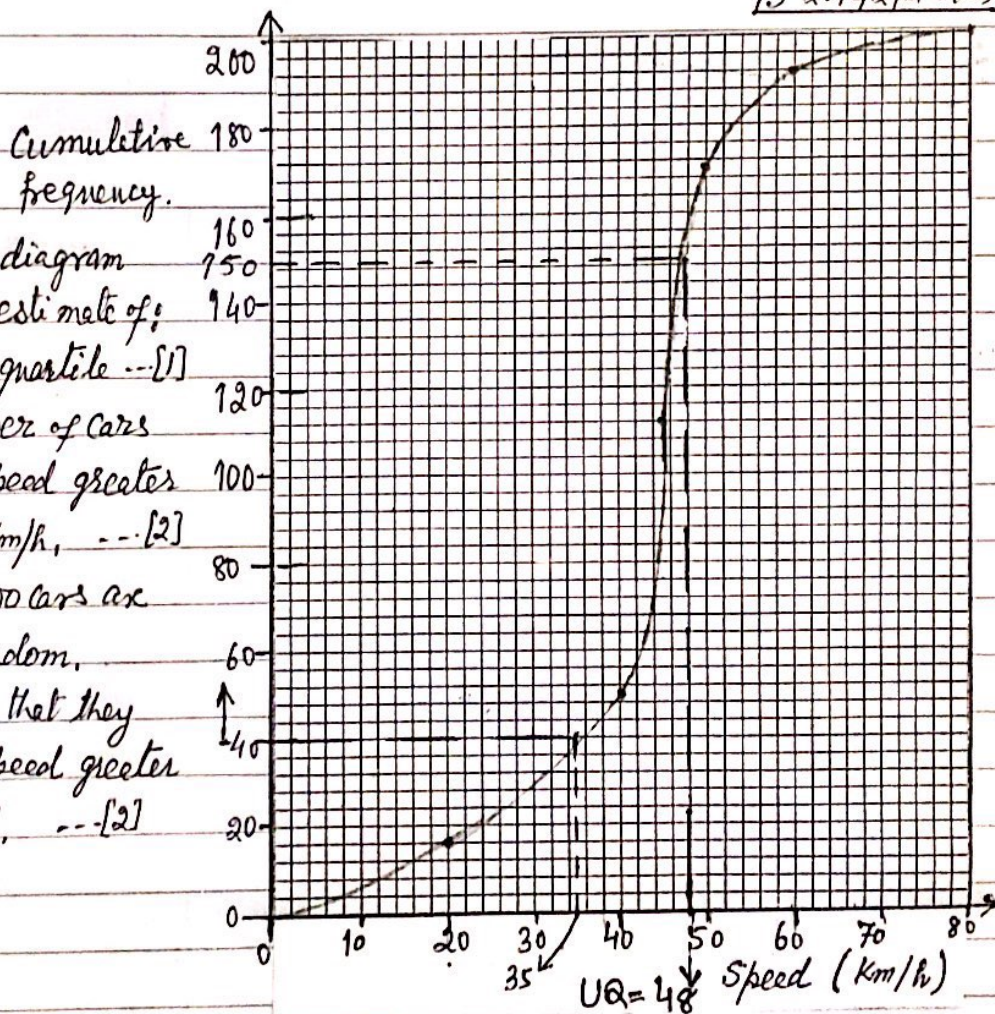 Cumuletive
frequency.
diagram
estimate of:
quartile ---[1]
er of cars
peed greater
m/h, ---[2]
00 cars are
dom,
that they
peed greater
---[2]
200
180
160
150
140
120
100
80
60
40
20
0
0 10 20 30 40 50 60 70 80
35
UQ=48 Speed (Km/h)